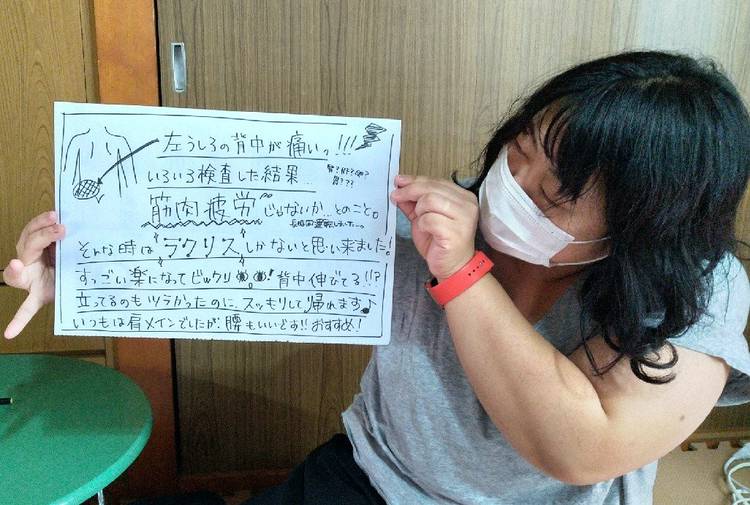 左うしろの背中が痛いっ!!!
いろいろ検査した結果…
胃???
筋肉疲労じゃないか…とのこと。
そんな時はラクリスしかないと思い来ました!
すっごい楽になってビックリ!背中伸びてる!!?
立ってるのもツラかったのに、スッキリして帰れます♪
いつもは肩メインでしたが、腰もいいどす!!おすすめ!